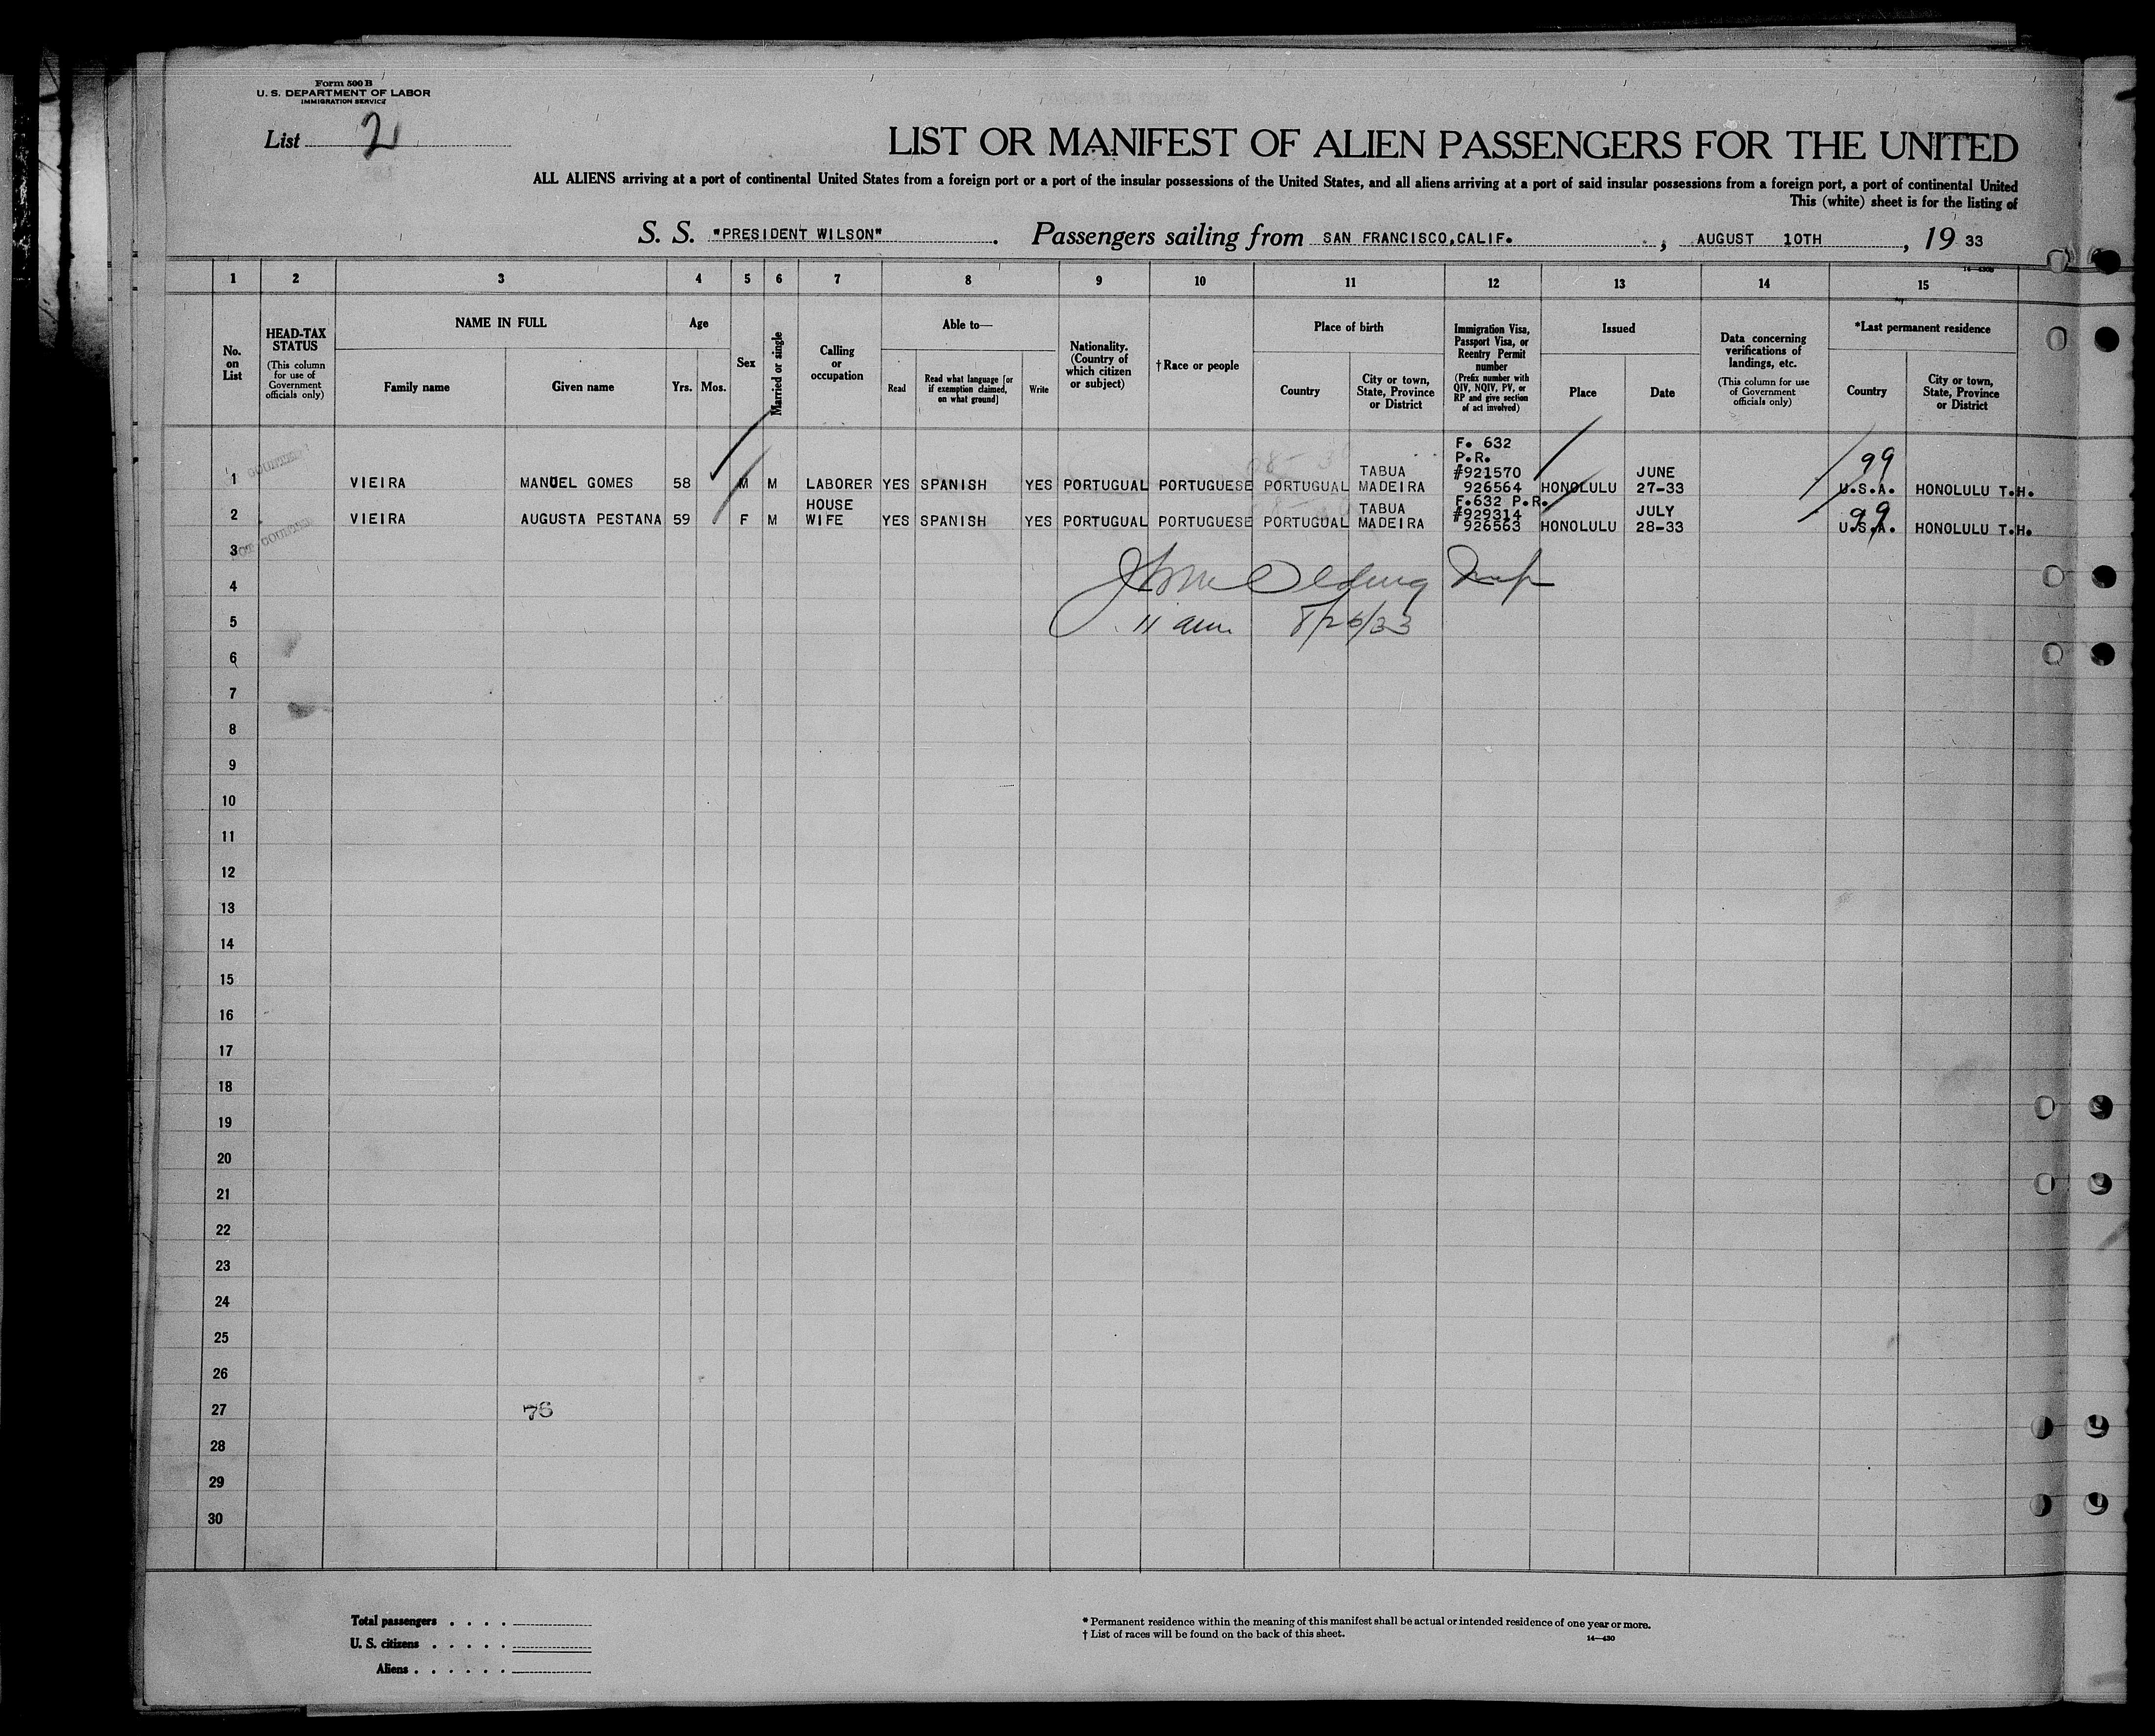 Form 500 B
U. S. DEPARTMENT OF LABOR
IMMIGRATION SERVICE
List 2
LIST OR MANIFEST OF ALIEN PASSENGERS FOR THE UNITED
ALL ALIENS arriving at a port of continental United States from a foreign port or a port of the insular possessions of the United States, and all aliens arriving at a port of said insular possessions from a foreign port, a port of continental United
This (white) sheet is for the listing of
S. S. "PRESIDENT WILSON" . Passengers sailing from SAN FRANCISCO,CALIF. , AUGUST 10TH , 19 33
1 2 3 4 5 6 7 8 9 10 11 12 13 14 15
No. on List
HEAD-TAX STATUS (This column for use of Government officials only)
NAME IN FULL
Family name
Given name
Age
Yrs.
Mos.
Sex
Married or single
Calling or occupation
Able to—
Read
Read what language [or if exemption claimed, on what ground]
Write
Nationality. (Country of which citizen or subject)
† Race or people
Place of birth
Country
City or town, State, Province or District
Immigration Visa, Passport Visa, or Reentry Permit number (Prefix number with QIV, NQIV, PV, or RP and give section of act involved)
Issued
Place
Date
Data concerning verifications of landings, etc. (This column for use of Government officials only)
*Last permanent residence
Country
City or town, State, Province or District
F. 632
P.R.
99
TABUA #921570 JUNE
1 VIEIRA MANUEL GOMES 58 M M LABORER YES SPANISH YES PORTUGUAL PORTUGUESE PORTUGUAL MADEIRA 926564 HONOLULU 27-33 U.S.A. HONOLULU T.H.
HOUSE TABUA F.632 P.R. #929314 JULY 99
2 VIEIRA AUGUSTA PESTANA 59 F M WIFE YES SPANISH YES PORTUGUAL PORTUGUESE PORTUGUAL MADEIRA 926563 HONOLULU 28-33 U.S.A. HONOLULU T.H.
3
4
5 11 am 8/26/33
6
7
8
9
10
11
12
13
14
15
16
17
18
19
20
21
22
23
24
25
26
27 76
28
29
30
Total passengers . . . .
U. S. citizens . . . . .
Aliens . . . . . .
* Permanent residence within the meaning of this manifest shall be actual or intended residence of one year or more.
† List of races will be found on the back of this sheet.
14—430